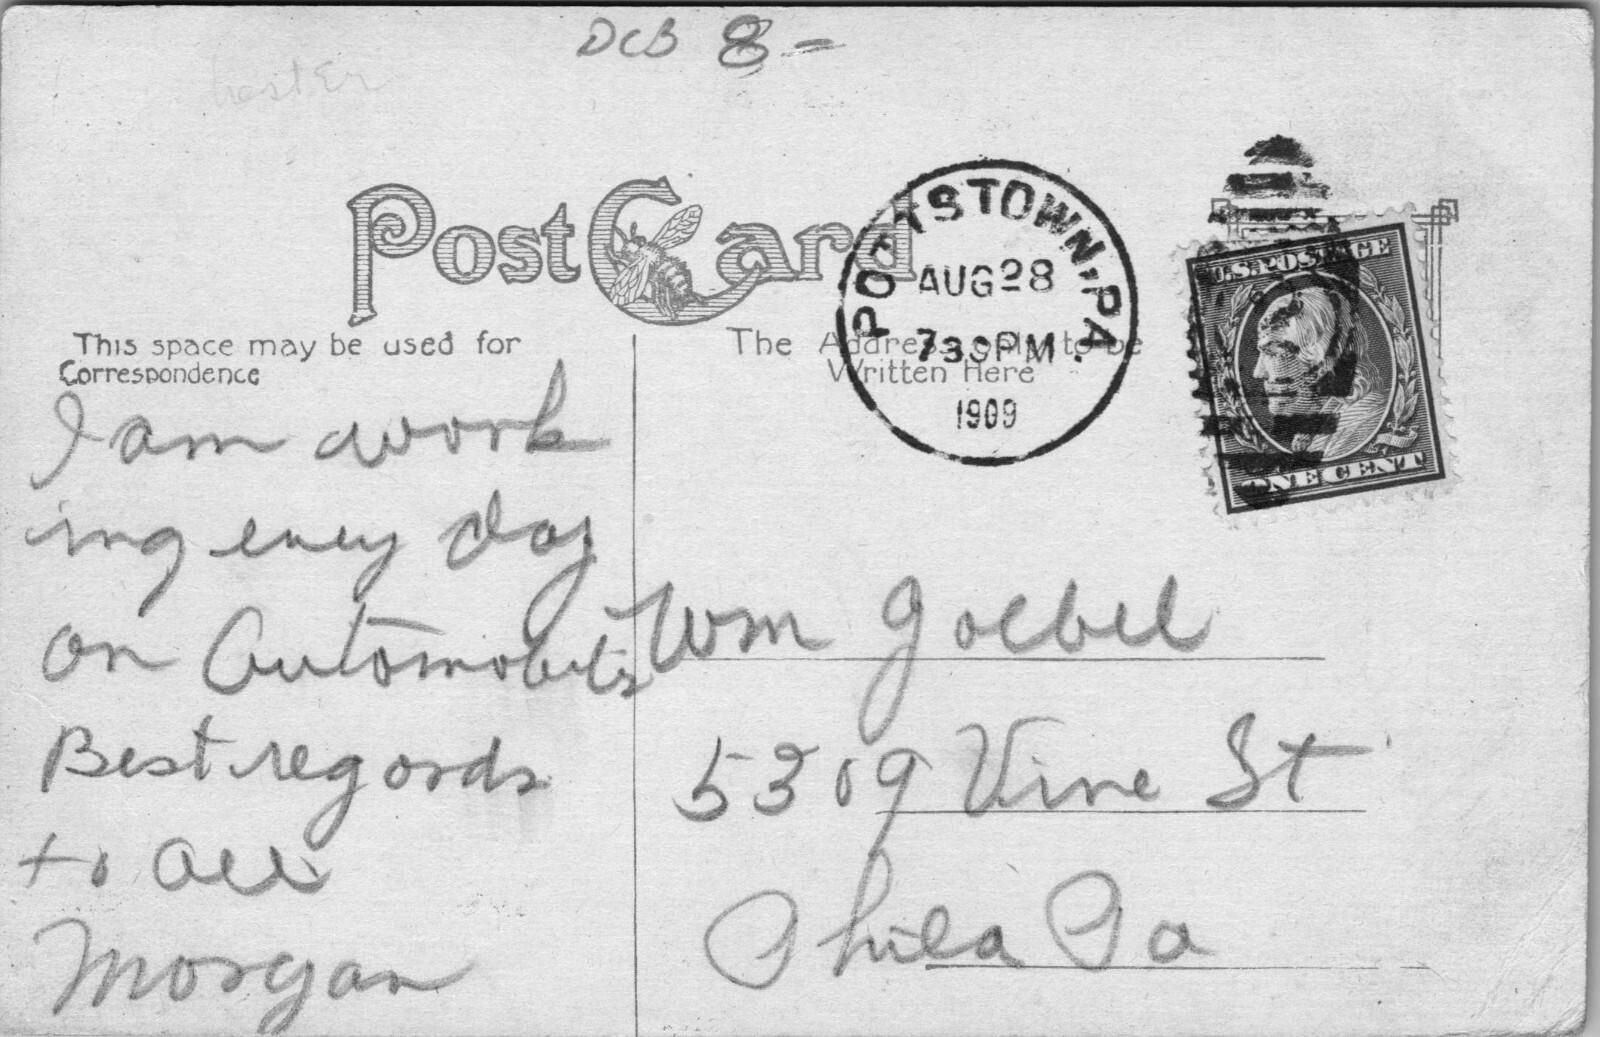 DCB 8-
Post Card
POTTSTOWN, PA.
AUG 28
730 PM
1909
U.S. POSTAGE
ONE CENT
This space may be used for
Correspondence
The Address only to be
Written Here
I am work
ing every day
on Automobiles
Best regards
to all
Morgan
Wm Goebel
5309 Vine St
Phila Pa